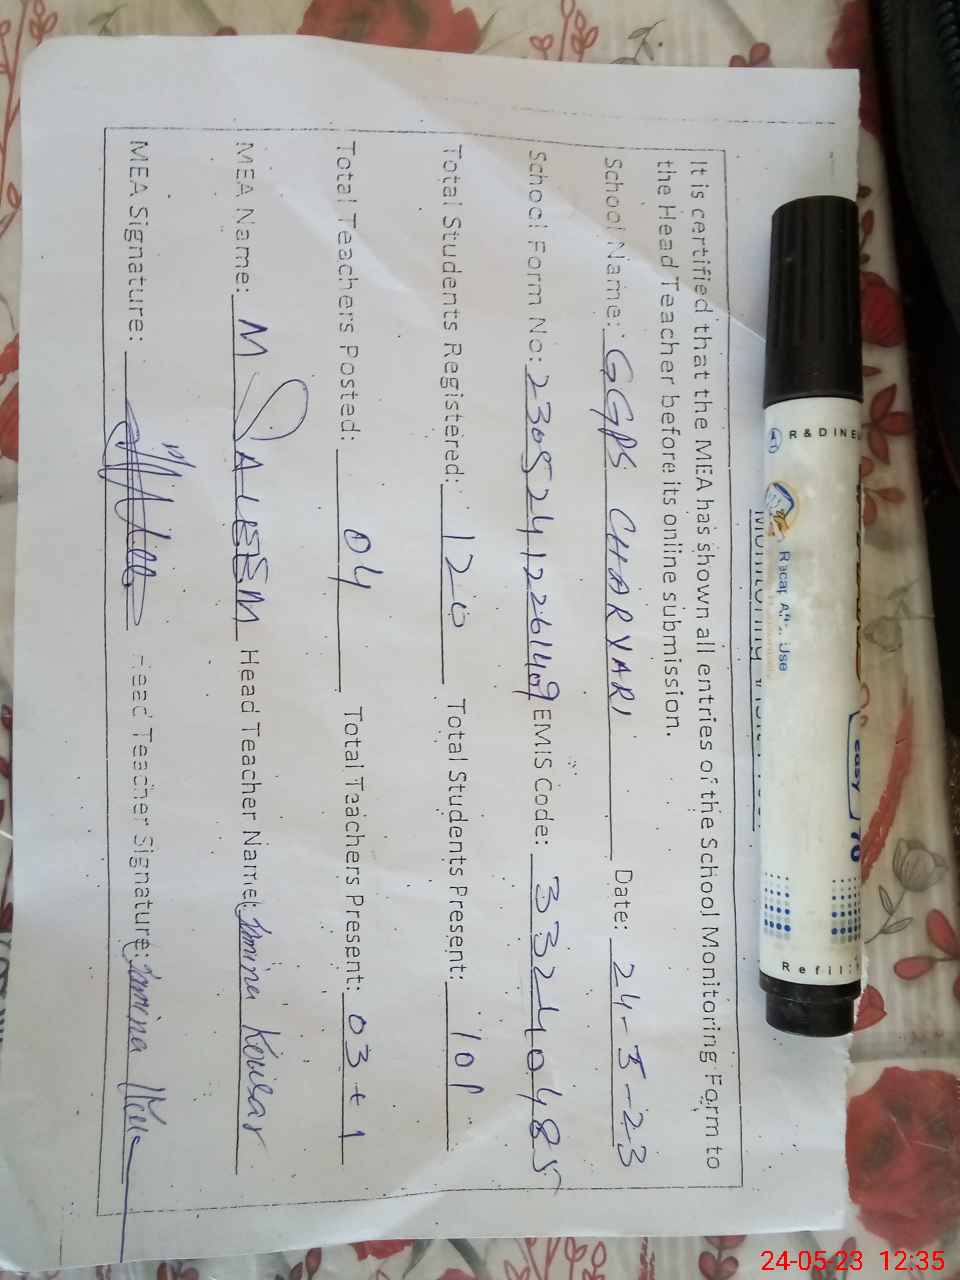 It is certified that the MEA has shown all entries of the School Monitoring Form to
the Head Teacher before its online submission.
School Name: GGPS CHARYARI Date: 24-5-23
School Form No: 23052412261409 EMIS Code: 33240485
Total Students Registered: 120 Total Students Present: 101
Total Teachers Posted: 04 Total Teachers Present: 03+1
MEA Name: M SALEEM Head Teacher Name: Kousar
MEA Signature: Head Teacher Signature:
R & DINE
Recap After Use
easy 70
Refill
24-05-23 12:35